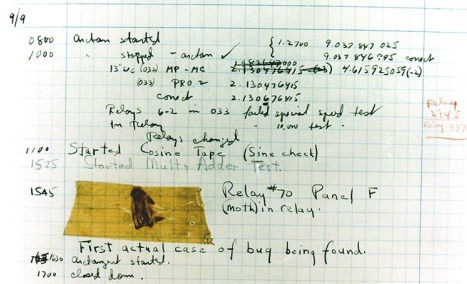 9/9
0800 Antan started
1000 " stopped - antan ✓ { 1.2700 9.037 847 025
9.037 846 995 correct
13"uc (032) MP-MC 2.130476415 4.615925059(-2)
(033) PRO 2 2.130476415
correct 2.130676415
Relays 6-2 in 033 failed special speed test
In Relay " 10,000 test.
Relay
2145
Relay 3370
Relays changed
1100 Started Cosine Tape (Sine check)
1525 Started Mult+Adder Test.
1545 Relay #70 Panel F
(moth) in relay.
First actual case of bug being found.
1630 antangent started.
1700 closed down.